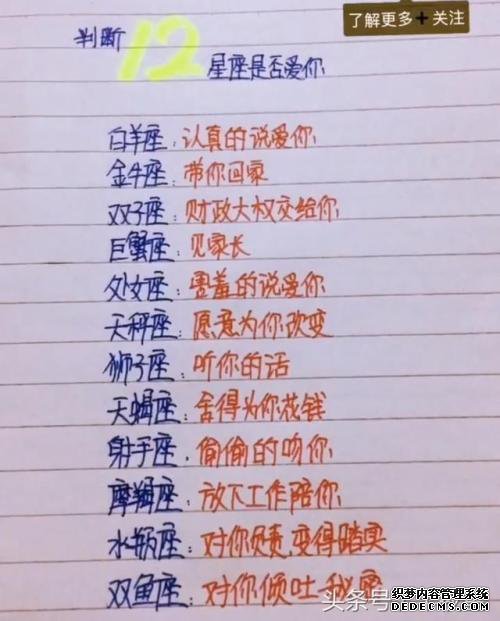 了解更多+关注
判断12星座是否爱你
白羊座:认真的说爱你
金牛座:带你回家
双子座:财政大权交给你
巨蟹座:见家长
处女座:害羞的说爱你
天秤座:愿意为你改变
狮子座:听你的话
天蝎座:舍得为你花钱
射手座:偷偷的吻你
摩羯座:放下工作陪你
水瓶座:对你负责,变得踏实
双鱼座:对你倾吐秘密
头条号
织梦内容管理系统
DEDECMS.COM